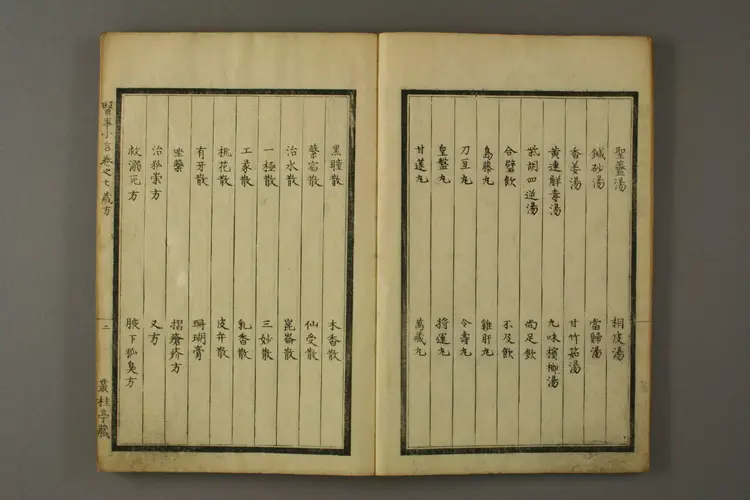 聖薤湯 桐皮湯
鍼砂湯 當歸湯
香姜湯 甘竹茹湯
黄連解毒湯 九味檳榔湯
柴胡四逆湯 尚足飲
合璧飲 不及飲
烏藤丸 雞肝丸
刀豆丸 令壽丸
皇盤丸 將運丸
甘遂丸 萬藏丸
黑瞳散 木香散
繫宕散 仙受散
治水散 崑崙散
一極散 三妙散
工彖散 乳香散
桃花散 皮弁散
有牙散 珊瑚膏
坐藥 摺瘡疥方
治狐祟方 又方
救溺死方 腋下狐臭方
醫事小言卷之七藏方 二 叢桂亭藏